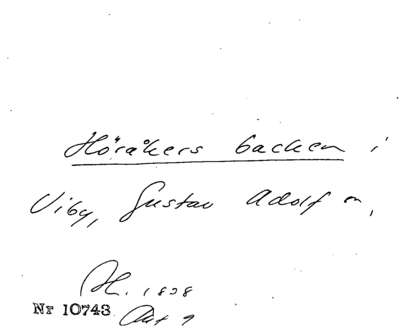 Höråkers backen i
Viby, Gustav Adolf n,
1828
Nr 10743